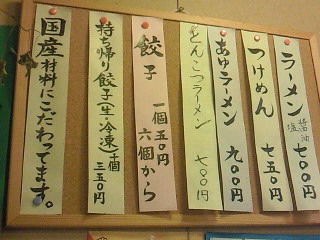 ラーメン 醤油 塩 七〇〇円
つけめん 七五〇円
あゅラーメン 九〇〇円
とんこつラーメン 七〇〇円
餃子 一個五〇円 六個から
持ち帰り餃子(生・冷凍)十個 三五〇円
国産材料にこだわってます。